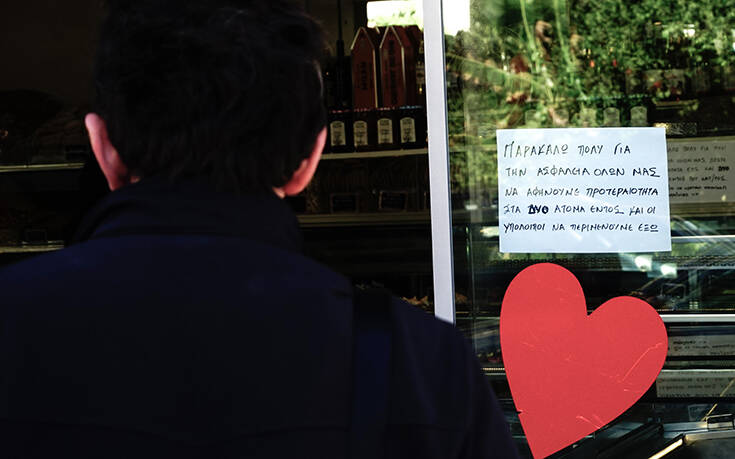 ΠΑΡΑΚΑΛΩ ΠΟΛΥ ΓΙΑ
ΤΗΝ ΑΣΦΑΛΕΙΑ ΟΛΩΝ ΜΑΣ
ΝΑ ΑΦΗΝΟΥΜΕ ΠΡΟΤΕΡΑΙΟΤΗΤΑ
ΣΤΑ ΔΥΟ ΑΤΟΜΑ ΕΝΤΟΣ ΚΑΙ ΟΙ
ΥΠΟΛΟΙΠΟΙ ΝΑ ΠΕΡΙΜΕΝΟΥΜΕ ΕΞΩ